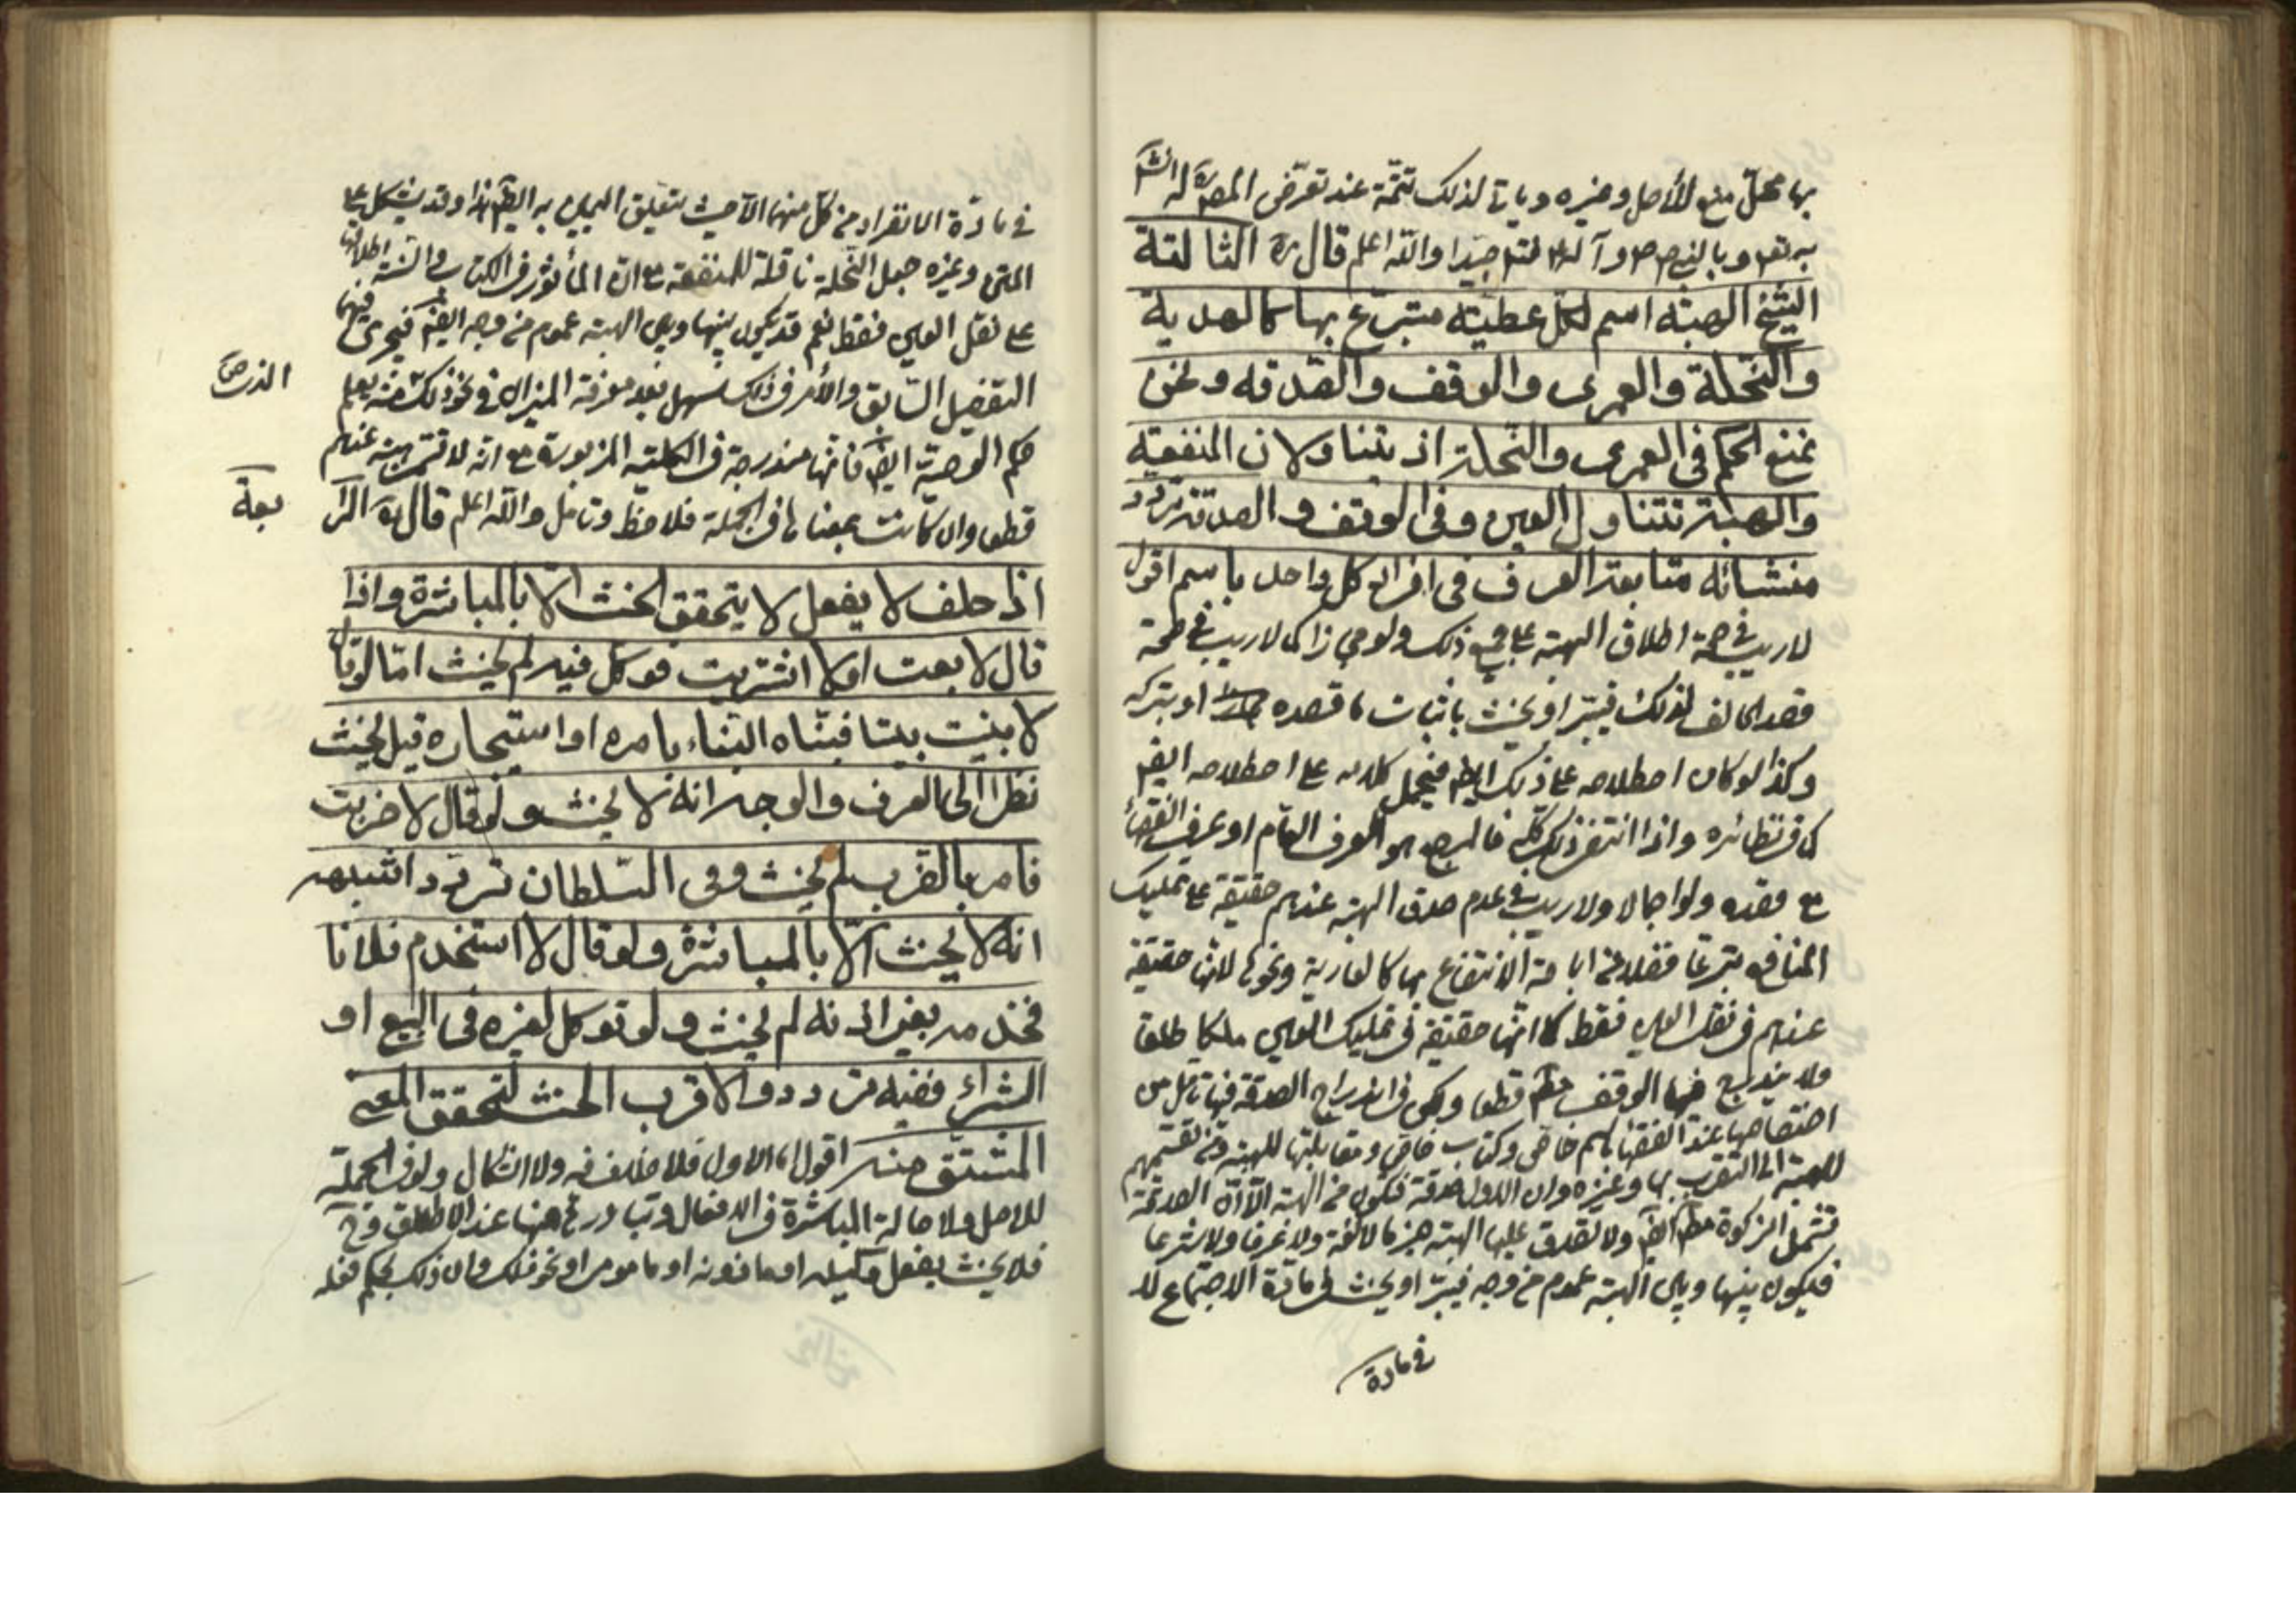 بها محل منع للأصل وغيره وياتي لذلك تتمة عند تعرض المصره له انشا
به تعم وبالنبي ص وآله جيدا والله اعلم قال ره الثالثة
الشيخ الهبة اسم لكل عطية متبرع بها كالهدية
والنحلة والعمرى والوقف والصدقة ونحن
نمنع الحكم في العمرى والنحلة اذ يتناولان المنفعة
والهبة تتناول العين وفي الوقف والصدقة تردد
منشائه متابعة العرف في افراد كل واحد باسم اقول
لا ريب في صحة اطلاق الهبة على جميع ذلك ولو مجازا كما لا ريب في صحة
قصد الحالف لذلك فيبر او يحنث باثبات ما قصده او بتركه
وكذا لو كان اصطلاحه على ذلك ايضا فيحمل كلامه على اصطلاحه ايض
كما في نظائره واذا انتفى ذلك كله فالمرجع هو العرف العام او عرف الفقهاء
مع قصده ولو اجمالا ولا ريب في عدم صدق الهبة عندهم حقيقة على تمليك
المنافع تبرعا فضلا عن اباحة الانتفاع بها كالعارية ونحوها لانها حقيقة
عندهم في نقل العين فقط كما انها حقيقة في تمليك العين ملكا طلقا
ولا يندرج فيها الوقف قطعا ولكن في اندراج الصدقة فيها تأمل من
اختصاصها عند الفقهاء باسم خاص وكتاب خاص ومقابلتها للهبة ومن تقسيمهم
للهبة الى التقرب بها وغيره وان الاول صدقة فتكون من الهبة الا ان الصدقة
تشمل الزكوة ايض ولا تصدق عليها الهبة جزما لا لغة ولا عرفا ولا شرعا
فيكون بينها وبين الهبة عموم من وجه فيبر او يحنث في مادة الاجتماع لا
في مادة
في مادة الانفراد من كل منهما الا حيث يتعلق اليمين به ايض هذا وقد يشكل على
المتن وغيره جعل النحلة ناقلة للمنفعة مع ان المأثور في الكتاب والسنة اطلاقها
على نقل العين فقط نعم قد يكون بينها وبين الهبة عموم من وجه ايض فيجرى فيها
التفصيل السابق والأمر في ذلك سهل بعد معرفة الميزان في نحو ذلك ومنه يعلم
حكم الوصية ايض فانها مندرجة في الكلية المزبورة مع انه لا تسمى هبة عندهم
قطعا وان كانت بمعناها في الجملة فلاحظ وتأمل والله اعلم قال ره الرا
بعة
اذا حلف لا يفعل لا يتحقق الحنث الا بالمباشرة واذا
قال لا بعت او لا اشتريت فوكل فيه لم يحنث امّا لو قال
لا بنيت بيتا فبناه البناء بامره او استيجاره قيل يحنث
نظرا الى العرف والوجه انه لا يحنث ولو قال لا ضربت
فامر بالضرب لم يحنث وفى السلطان تردد اشبهه
انه لا يحنث الا بالمباشرة ولو قال لا استخدم فلانا
فخدمه بغير اذنه لم يحنث ولو توكل لغيره في البيع او
الشراء ففيه تردد والاقرب الحنث لتحقق المعنى
المشتق منه اقول اما الاول فلا خلاف فيه ولا اشكال ولو في الجملة
للاصل ولاصالة المباشرة في الافعال وتبادرها منها عند الاطلاق وح
فلا يحنث بفعل وكيله او ماذونه او مامومر او نحو ذلك وان ذلك بحكم فعله